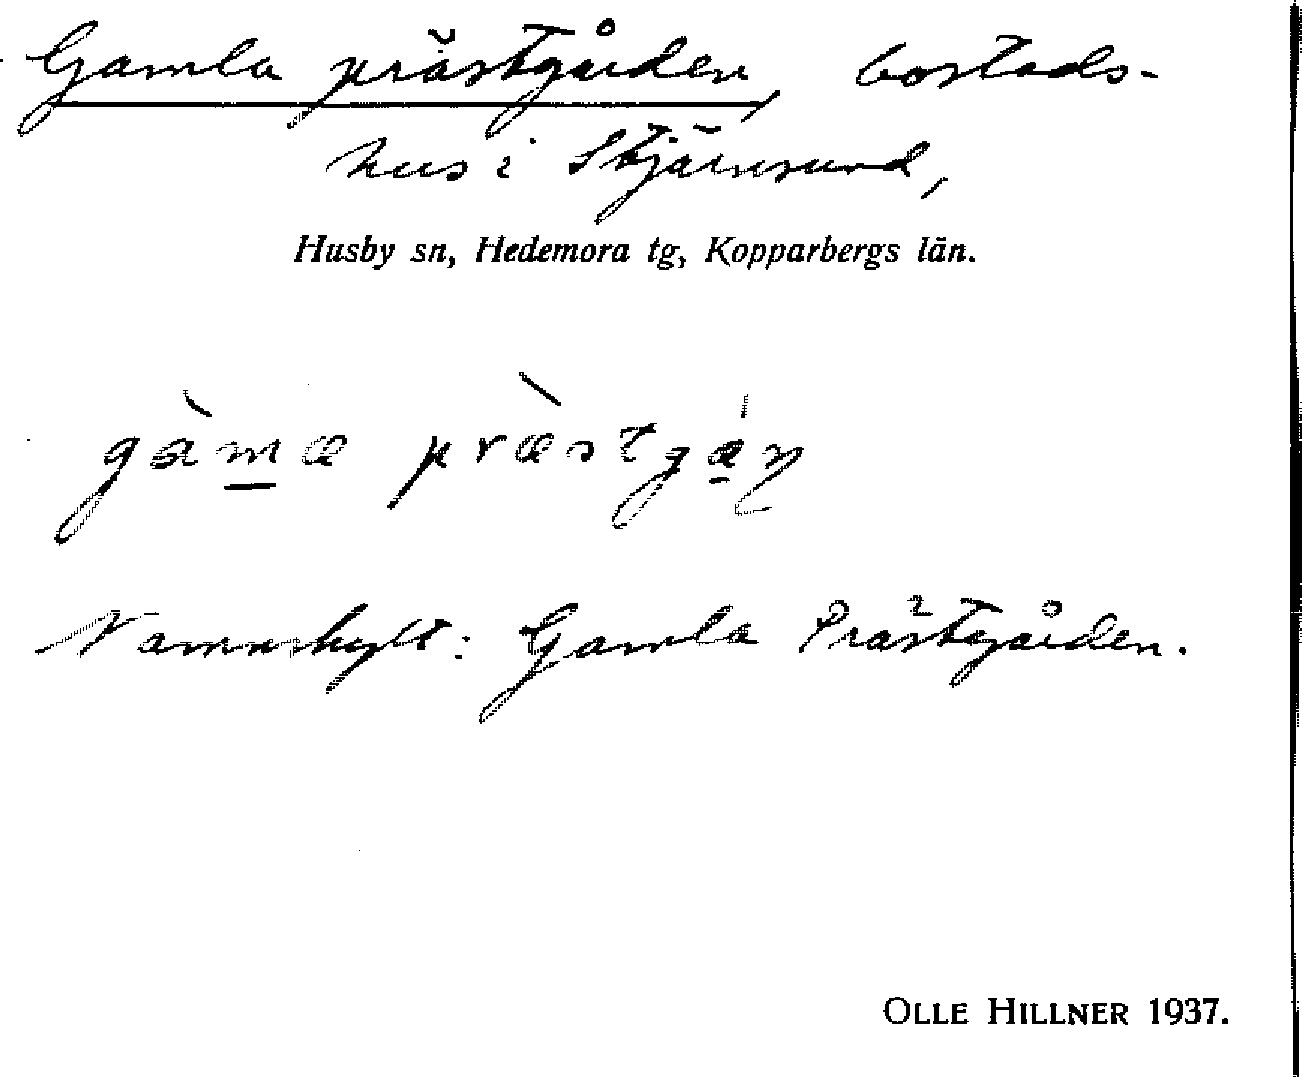 Gamla prästgården, bostads-
hus i Stjärnsund,
Husby sn, Hedemora tg, Kopparbergs län.
gàmæ præ̀stgáɳ
Namnskylt: Gamla Prästgården.
OLLE HILLNER 1937.